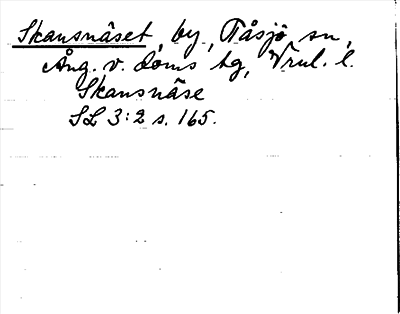 Skansnäset, by, Tåsjö sn,
Ång. v. doms hg, Vrnl. l.
Skansnäse
SL 3:2 s. 165.